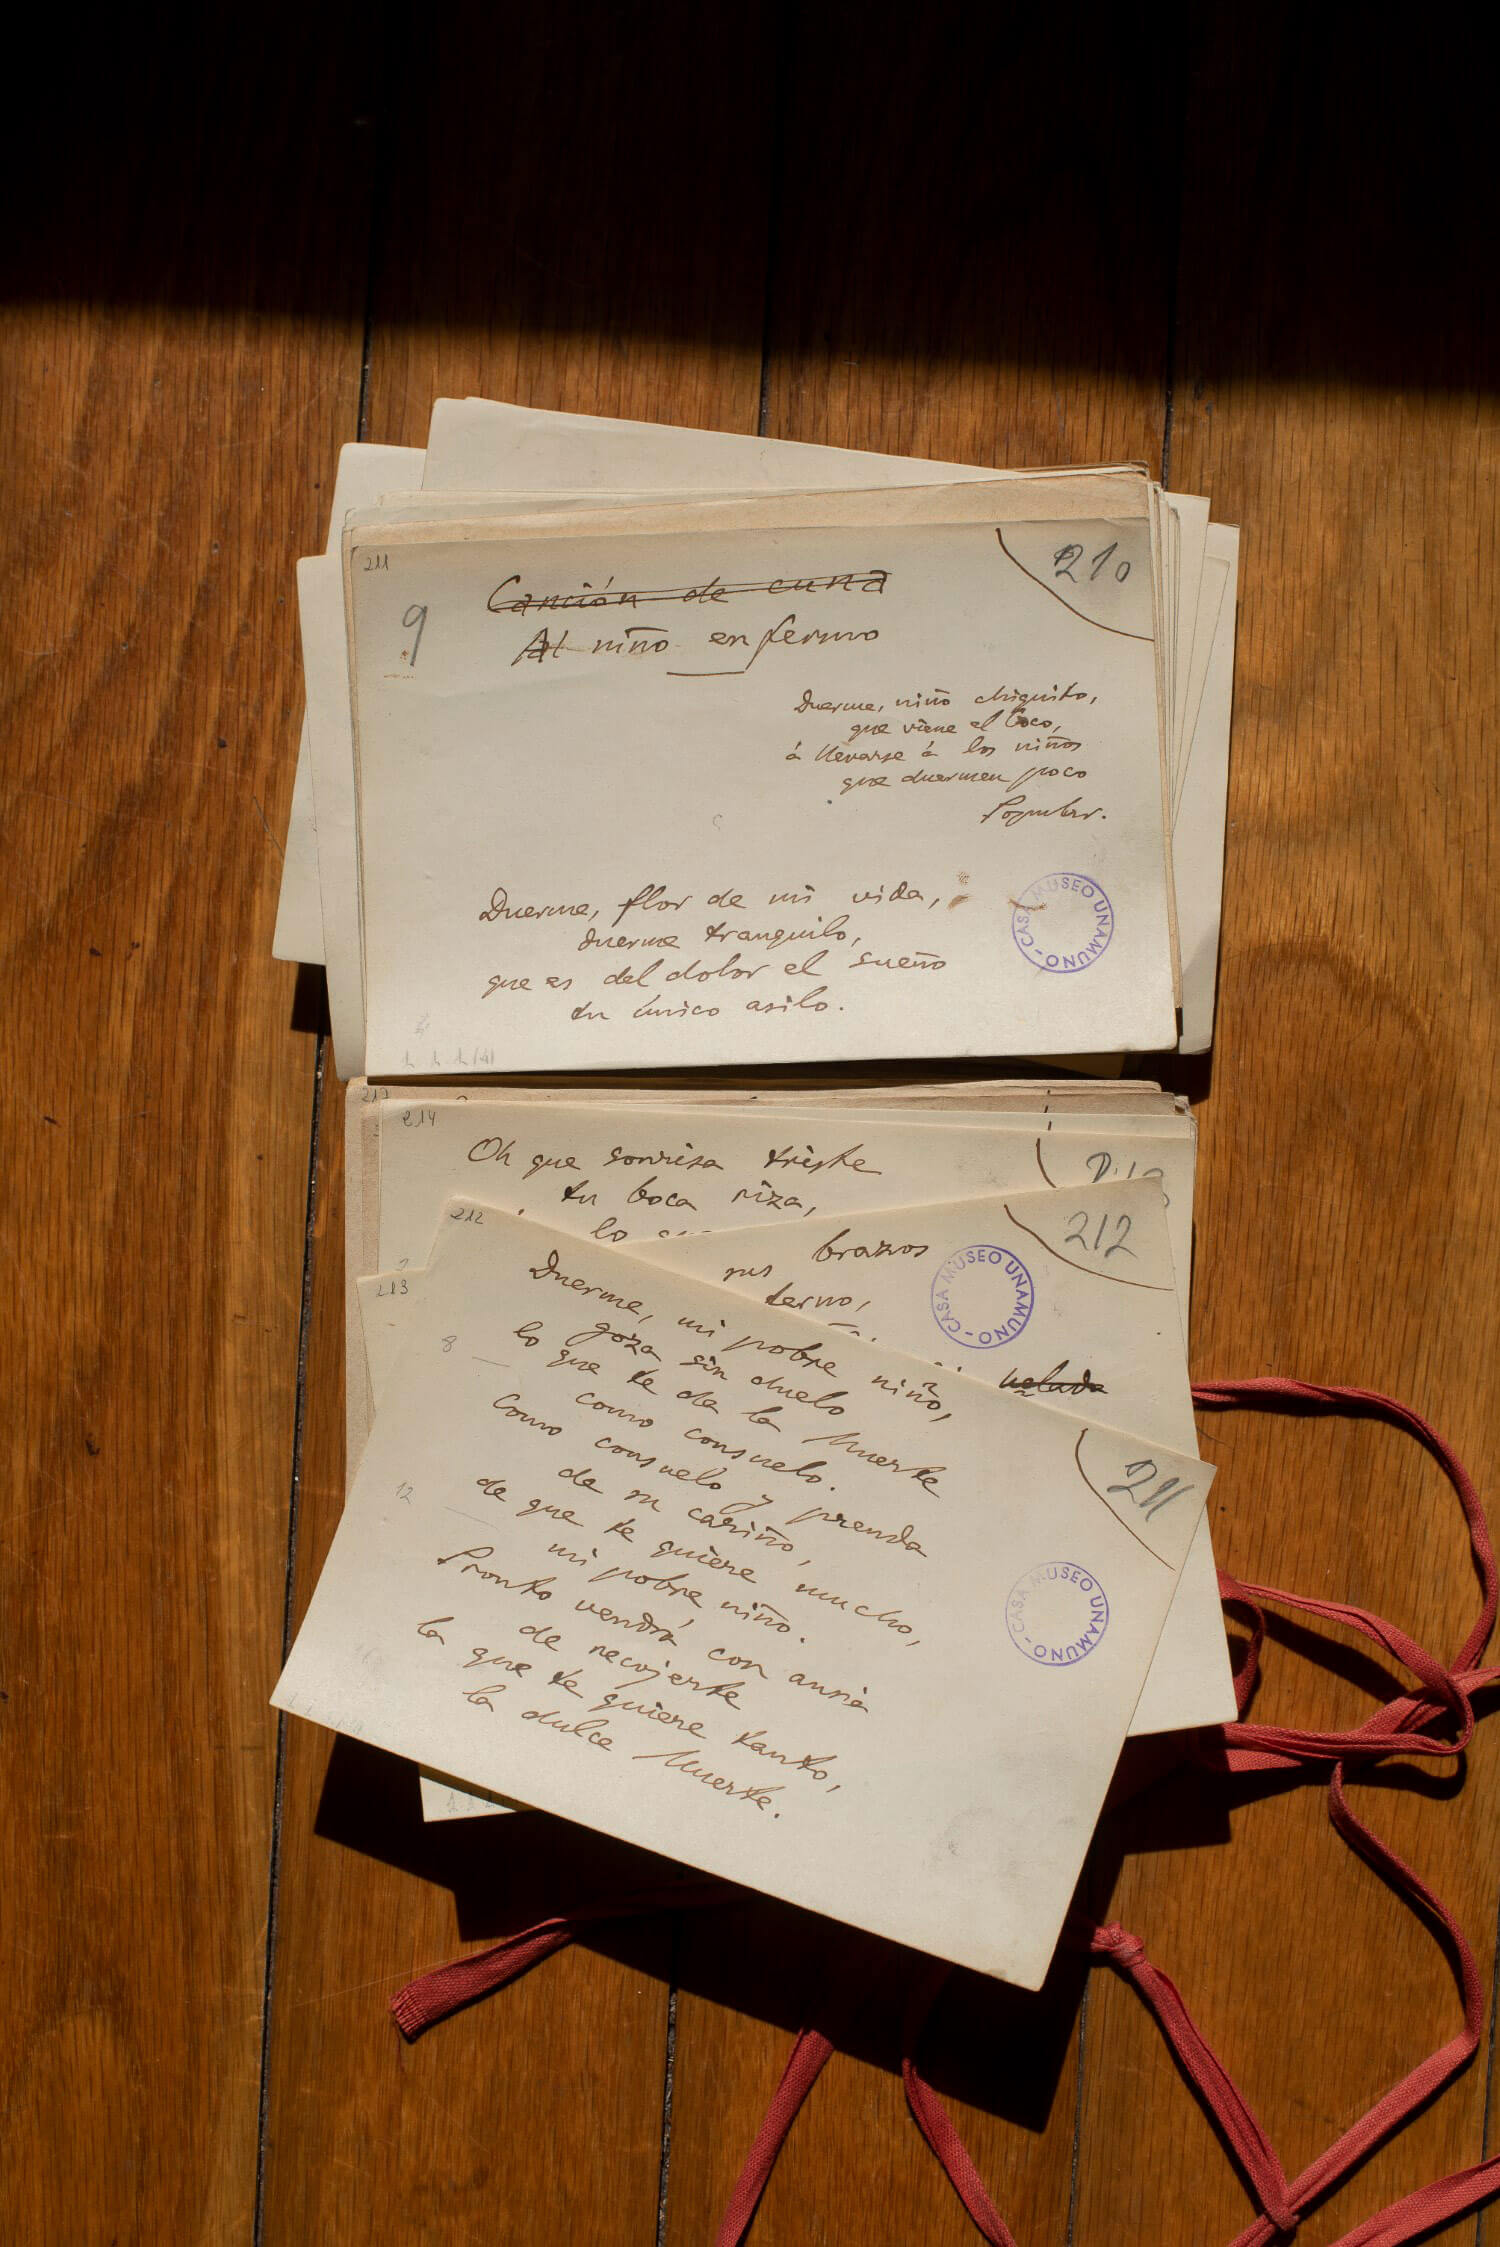 211
210
9
Canción de cuna
Al niño enfermo
Duerme, niño chiquito,
que viene el Coco,
á llevarse á los niños
que duermen poco
Popular.
Duerme, flor de mi vida,
duerme tranquilo,
que es del dolor el sueño
tu único asilo.
CASA MUSEO UNAMUNO
217
214
Oh que sonrisa triste
tu boca riza,
lo
212
sus brazos
terno,
CASA MUSEO UNAMUNO
213
velada
212
211
8
Duerme, mi pobre niño,
goza sin duelo
lo que te da la Muerte
como consuelo.
Como consuelo y prenda
de su cariño,
12
de que te quiere mucho,
mi pobre niño.
Pronto vendrá con ansia
de recojerte
la que te quiere tanto,
la dulce Muerte.
CASA MUSEO UNAMUNO